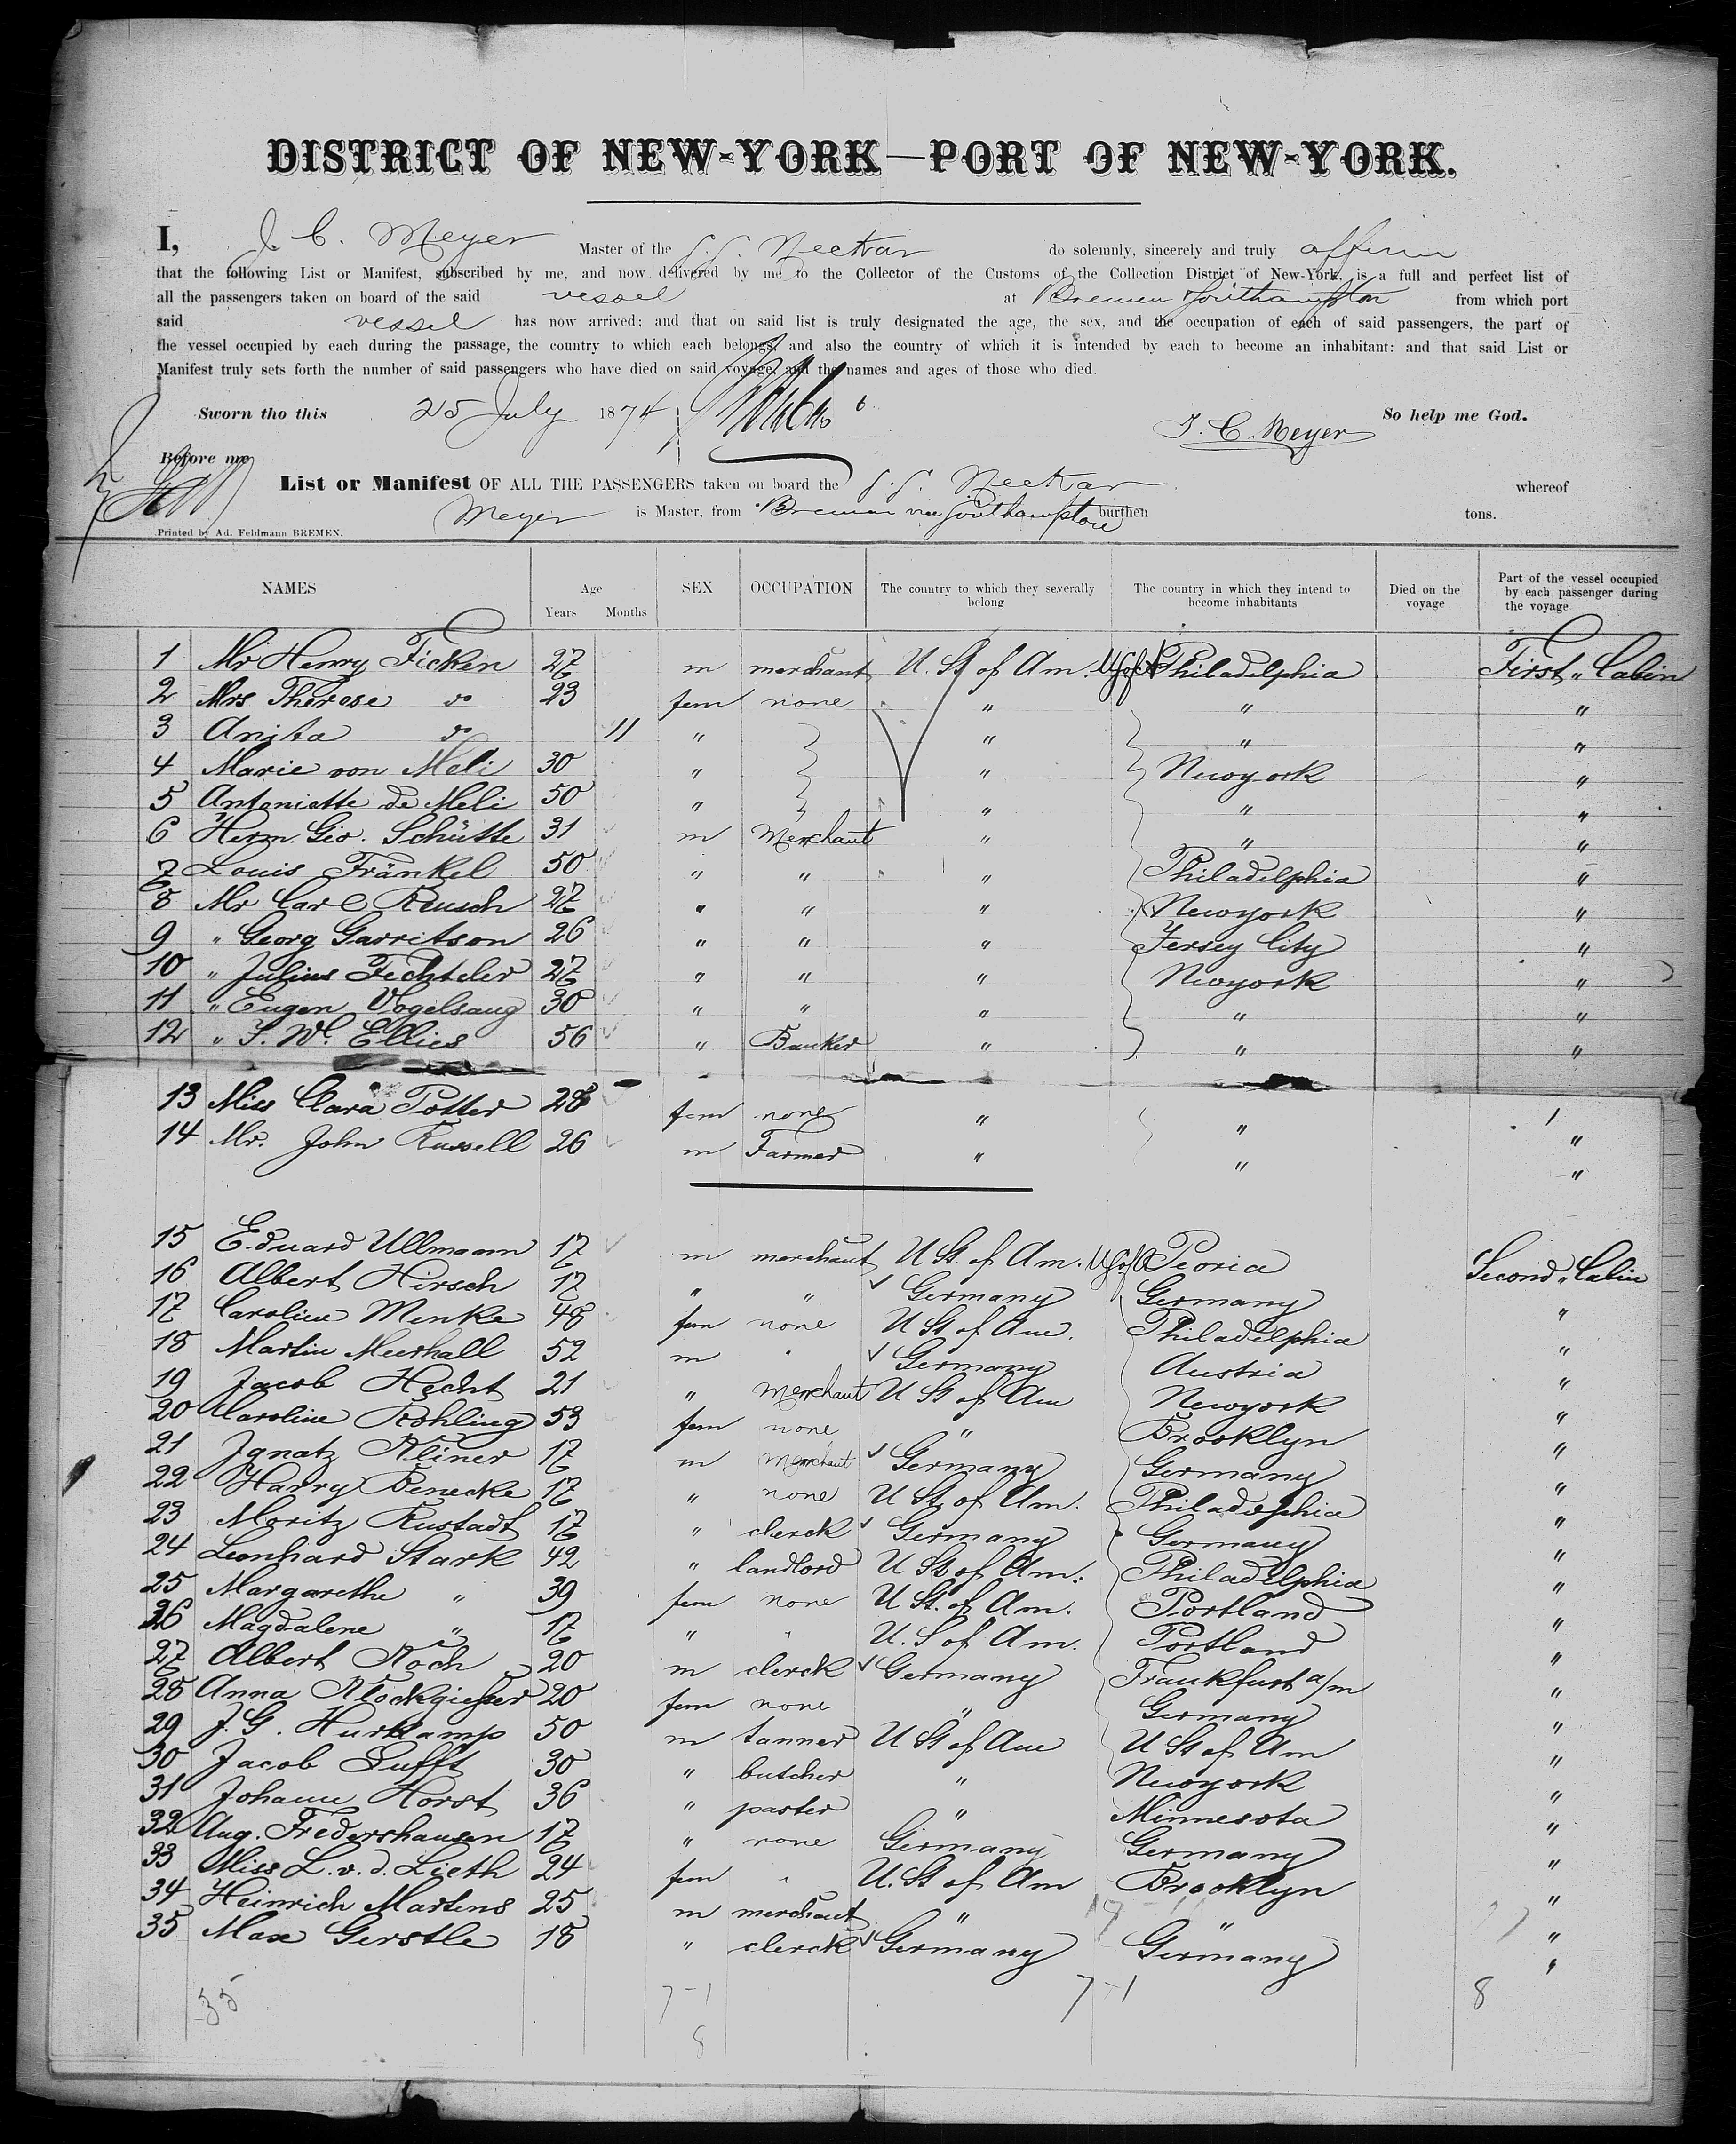 DISTRICT OF NEW-YORK—PORT OF NEW-YORK.
I, J. C. Meyer Master of the S.S. Neckar do solemnly, sincerely and truly affirm
that the following List or Manifest, subscribed by me, and now delivered by me to the Collector of the Customs of the Collection District of New-York, is a full and perfect list of
all the passengers taken on board of the said vessel at Bremen Southampton from which port
said vessel has now arrived; and that on said list is truly designated the age, the sex, and the occupation of each of said passengers, the part of
the vessel occupied by each during the passage, the country to which each belongs, and also the country of which it is intended by each to become an inhabitant: and that said List or
Manifest truly sets forth the number of said passengers who have died on said voyage, and the names and ages of those who died.
Sworn tho this 25 July 1874 So help me God.
J. C. Meyer
Before me
List or Manifest OF ALL THE PASSENGERS taken on board the S.S. Neckar whereof
Meyer is Master, from Bremen via Southampton burthen tons.
Printed by Ad. Feldmann BREMEN.
NAMES Age Years Months SEX OCCUPATION The country to which they severally belong The country in which they intend to become inhabitants Died on the voyage Part of the vessel occupied by each passenger during the voyage
1 Mr Henry Ficken 27 m merchant U. St of Am. USofA Philadelphia First " Cabin
2 Mrs Therese do 23 fem none " " "
3 Anita do 11 " " " "
4 Marie von Meli 30 " " Newyork "
5 Antoniette de Meli 50 " " " "
6 Herm. Geo. Schütte 31 m Merchant " " "
7 Louis Fränkel 50 " " " Philadelphia "
8 Mr Carl Reusch 27 " " " Newyork "
9 " Georg Garritson 26 " " " Jersey City "
10 " Julius Fechteler 27 " " " Newyork "
11 " Eugen Vogelsang 30 " " " " "
12 " S. Wl. Ellies 56 " Banker " " "
13 Miss Clara Potter 28 fem none " " "
14 Mr. John Russell 26 m Farmer " " "
15 Eduard Ullmann 17 m merchant U St. of Am. USofA Peoria Second " Cabin
16 Albert Hirsch 17 " " Germany Germany "
17 Caroline Menke 48 fem none U St of Am. Philadelphia "
18 Martin Meerhall 52 m " Germany Austria "
19 Jacob Hecht 21 " Merchant U St of Am Newyork "
20 Caroline Rohling 53 fem none " Brooklyn "
21 Ignatz Kliner 17 m Merchant Germany Germany "
22 Harry Benecke 17 " none U St. of Am. Philadelphia "
23 Moritz Rustadt 17 " clerck Germany Germany "
24 Leonhard Stark 42 " landlord U St of Am. Philadelphia "
25 Margarethe " 39 fem none U St. of Am. Portland "
26 Magdalene " 17 " " U. S of Am. Portland "
27 Albert Koch 20 m clerck Germany Frankfurt a/m "
28 Anna Klockgiesser 20 fem none " Germany "
29 J. G. Hurkamp 50 m tanner U St of Am U St of Am "
30 Jacob Sufft 30 " butcher " Newyork "
31 Johann Horst 36 " paster " Minnesota "
32 Aug. Fredershausen 17 " none Germany Germany "
33 Miss L. v. d. Lieth 24 fem " U. St of Am Brooklyn "
34 Heinrich Martens 25 m merchant " " "
35 Max Gerstle 18 " clerck Germany Germany "
35 7-1 7-1 8
8